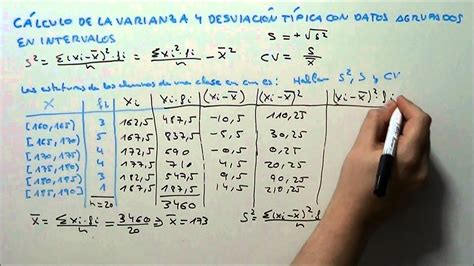 CÁLCULO DE LA VARIANZA Y DESVIACIÓN TÍPICA CON DATOS AGRUPADOS
EN INTERVALOS
S = +√S²
S² = Σ(xi-x̄)²·fi / n = Σxi²·fi / n - x̄²
CV = S / x̄
Las estaturas de los alumnos de una clase en cm es: Hallar S², S y CV
X fi xi xi·fi (xi-x̄) (xi-x̄)² (xi-x̄)²·fi
[160,165) 3 162,5 487,5 -10,5 110,25
[165,170) 5 167,5 -5,5 30,25
[170,175) 4 172,5 690 -0,5 0,25
[175,180) 4 177,5 710 4,5 20,25
[180,185) 3 182,5 547,5 9,5 90,25
[185,190) 1 187,5 187,5 14,5 210,25
n=20 3460
x̄ = Σxi·fi / n = 3460 / 20 ⇒ x̄ = 173
S² = Σ(xi-x̄)²·fi / n